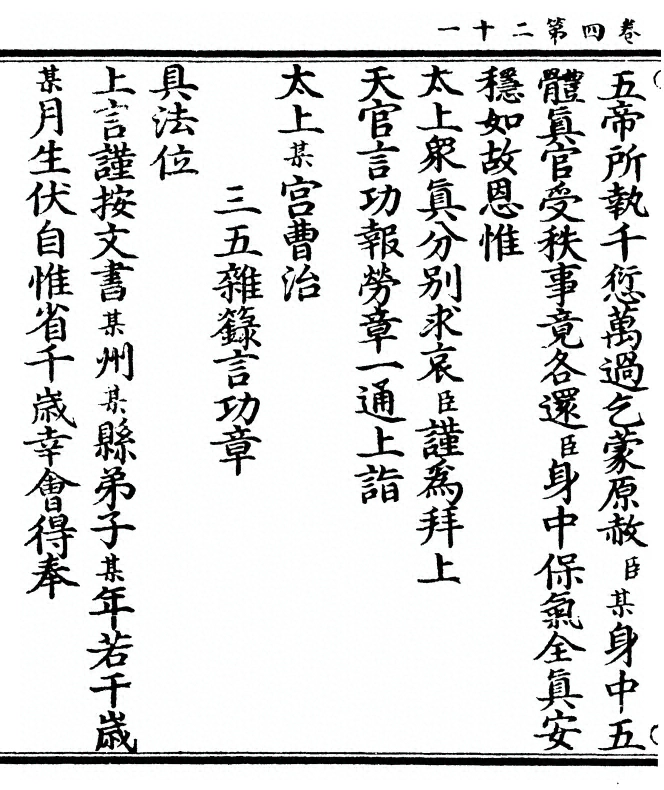 卷四第二十一
五帝所執千愆萬過乞蒙原赦臣某身中五
體眞官受秩事竟各還臣身中保氣全眞安
穩如故恩惟
太上衆眞分别求哀臣謹爲拜上
天官言功報勞章一通上詣
太上某宫曹治
三五雜籙言功章
具法位
上言謹按文書某州某縣弟子某年若干歲
某月生伏自惟省千歲幸會得奉